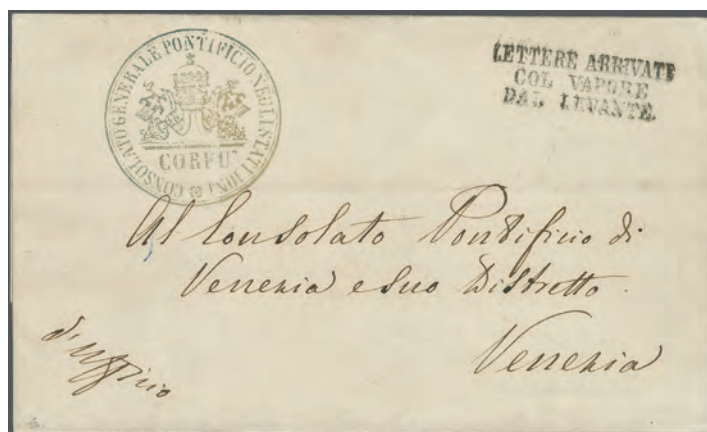 CONSOLATO GENERALE PONTIFICIO NEGLI STATI IONI
CORFU'
LETTERE ARRIVATE
COL VAPORE
DAL LEVANTE.
Al Consolato Pontificio di
Venezia e suo Distretto.
Venezia
d'Uffizio